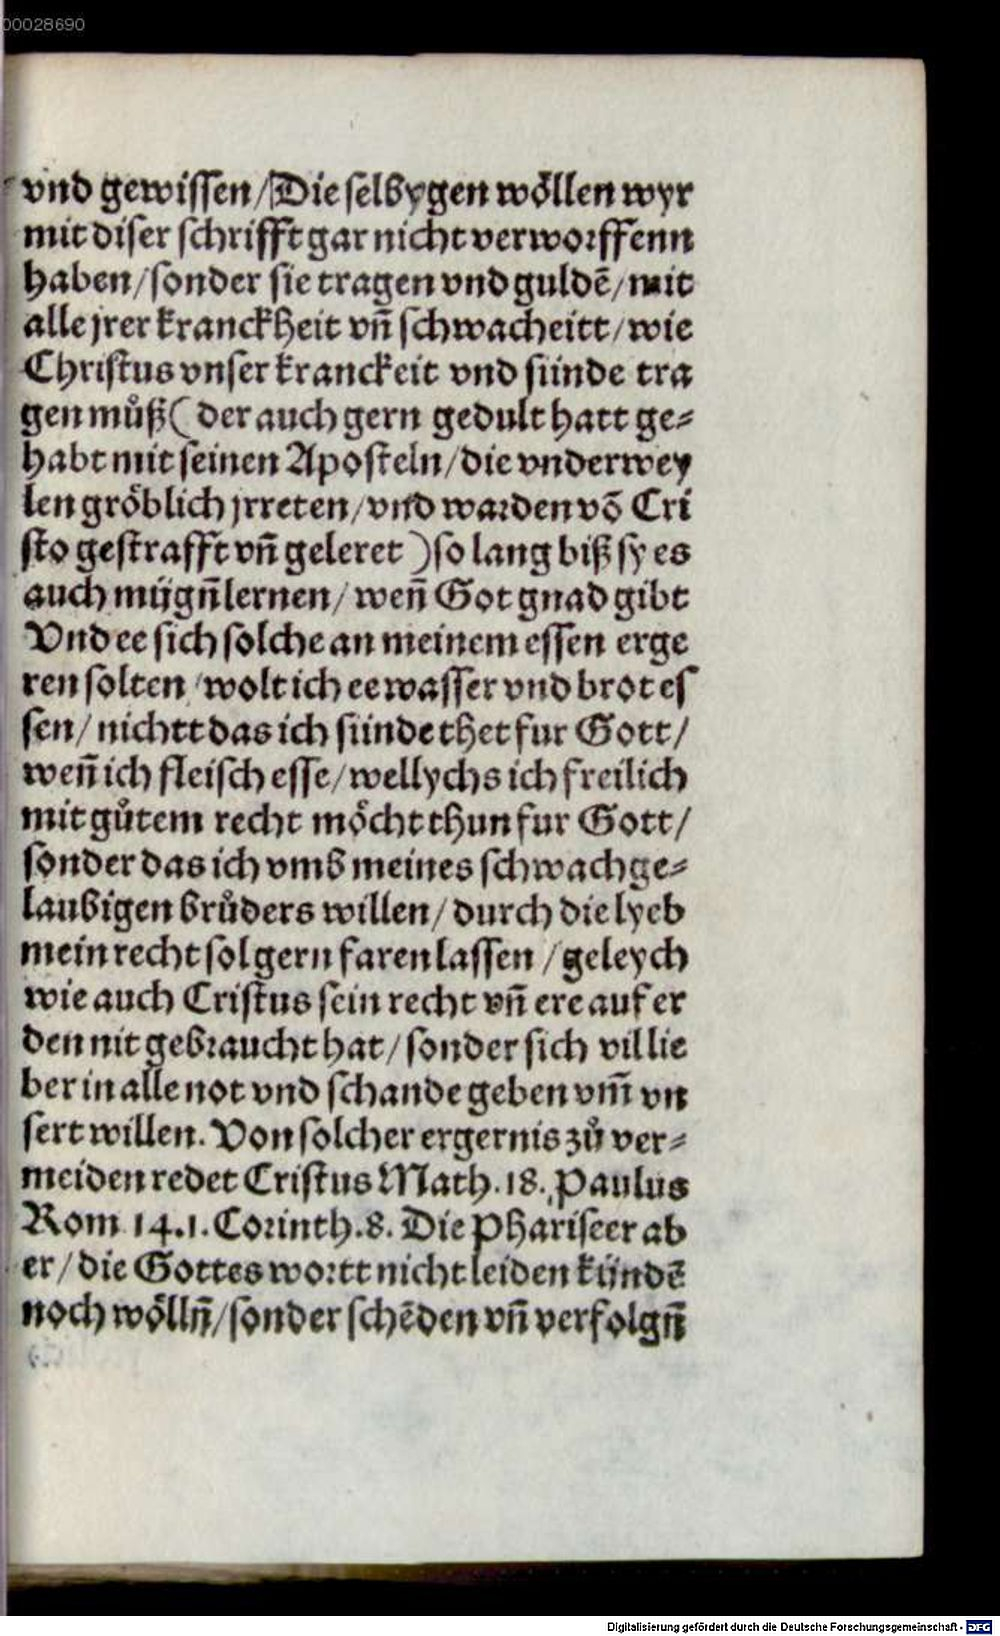 00028690
vnd gewissen/Die selbygen wöllen wyr
mit diser schrifft gar nicht verworffenn
haben/sonder sie tragen vnd guldē/mit
alle jrer kranckheit vn̄ schwacheitt/wie
Christus vnser kranckeit vnd sünde tra
gen můß( der auch gern gedult hatt ge⸗
habt mit seinen Aposteln/die vnderwey
len gröblich jrreten/vnd warden vō Cri
sto gestrafft vn̄ geleret )so lang biß sy es
auch mügn̄ lernen/ wen̄ Got gnad gibt
Vnd ee sich solche an meinem essen erge
ren solten/wolt ich ee wasser vnd brot es
sen/ nichtt das ich sünde thet fur Gott/
wen̄ ich fleisch esse/wellychs ich freilich
mit gůtem recht möcht thun fur Gott/
sonder das ich vmb meines schwachge⸗
laubigen brůders willen/durch die lyeb
mein recht sol gern faren lassen /geleych
wie auch Cristus sein recht vn̄ ere auf er
den nit gebraucht hat/sonder sich vil lie
ber in alle not vnd schande geben vm̄ vn
sert willen. Von solcher ergernis zů ver⸗
meiden redet Cristus Math.18. Paulus
Rom 14.1. Corinth.8. Die Phariseer ab
er/die Gottes wortt nicht leiden kündē
noch wölln̄/sonder schēden vn̄ verfolgn̄
Digitalisierung gefördert durch die Deutsche Forschungsgemeinschaft - DFG